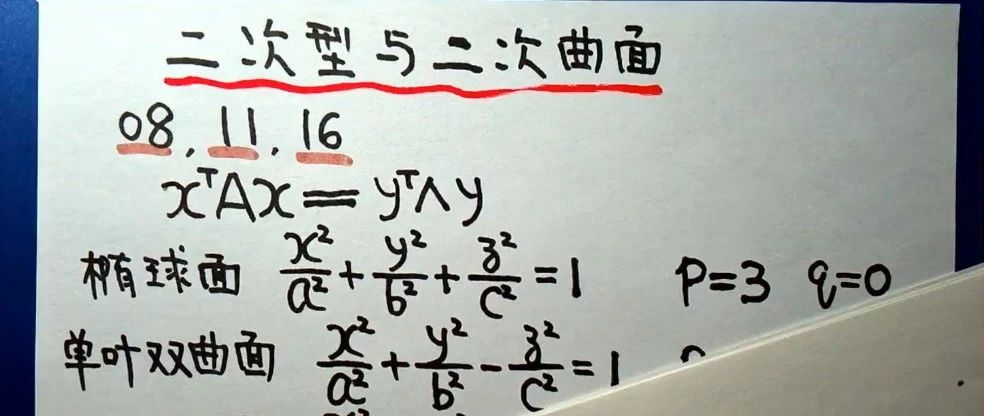 二次型与二次曲面
08, 11, 16
xᵀAx = yᵀΛy
椭球面 x²/a² + y²/b² + z²/c² = 1 p=3 q=0
单叶双曲面 x²/a² + y²/b² - z²/c² = 1